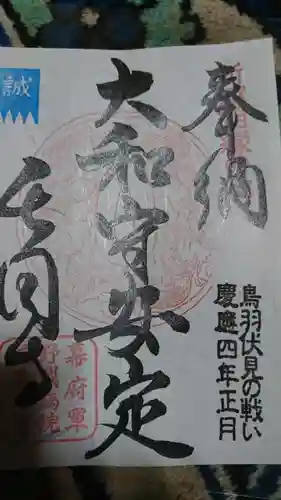 奉納
鳥羽伏見の戦い
慶應四年正月
大和守安定
幕府軍
野戦病院
誠